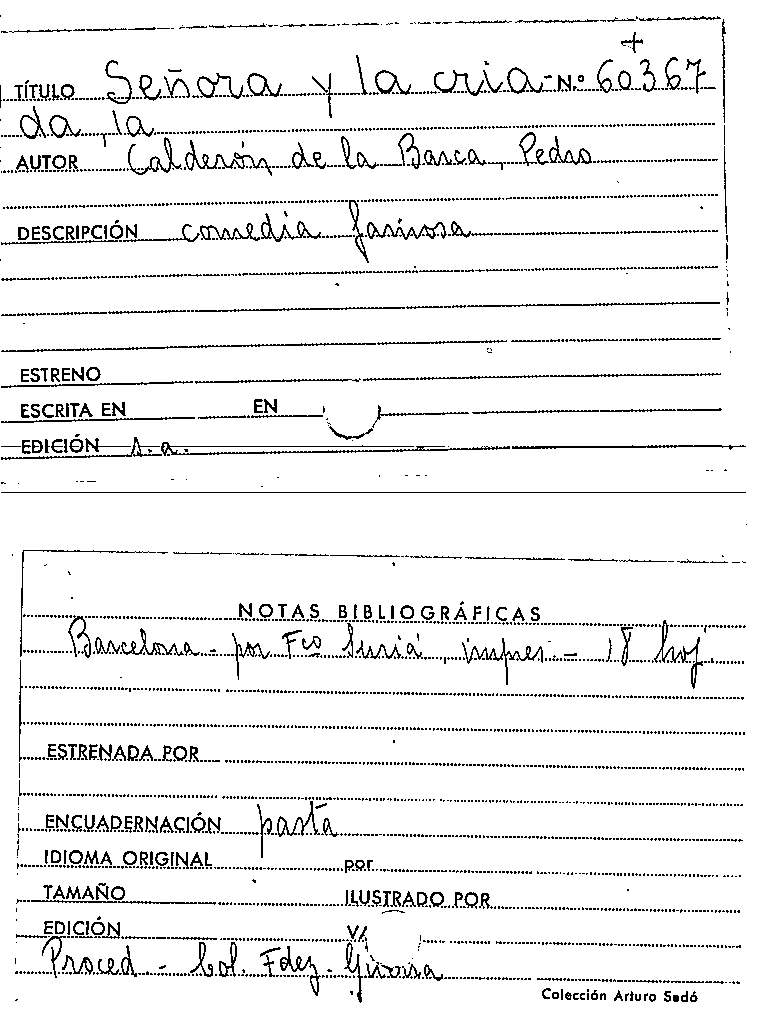 +
TÍTULO Señora y la cria- N.º 60367
da, la
AUTOR Calderón de la Barca, Pedro
DESCRIPCIÓN comedia famosa
ESTRENO
ESCRITA EN EN
EDICIÓN s.a.
NOTAS BIBLIOGRÁFICAS
Barcelona - por Fco Suriá, impres. - 18 hoj.
ESTRENADA POR
ENCUADERNACIÓN pasta
IDIOMA ORIGINAL por
TAMAÑO ILUSTRADO POR
EDICIÓN
Proced - Col. Fdez.
Colección Arturo Sedó